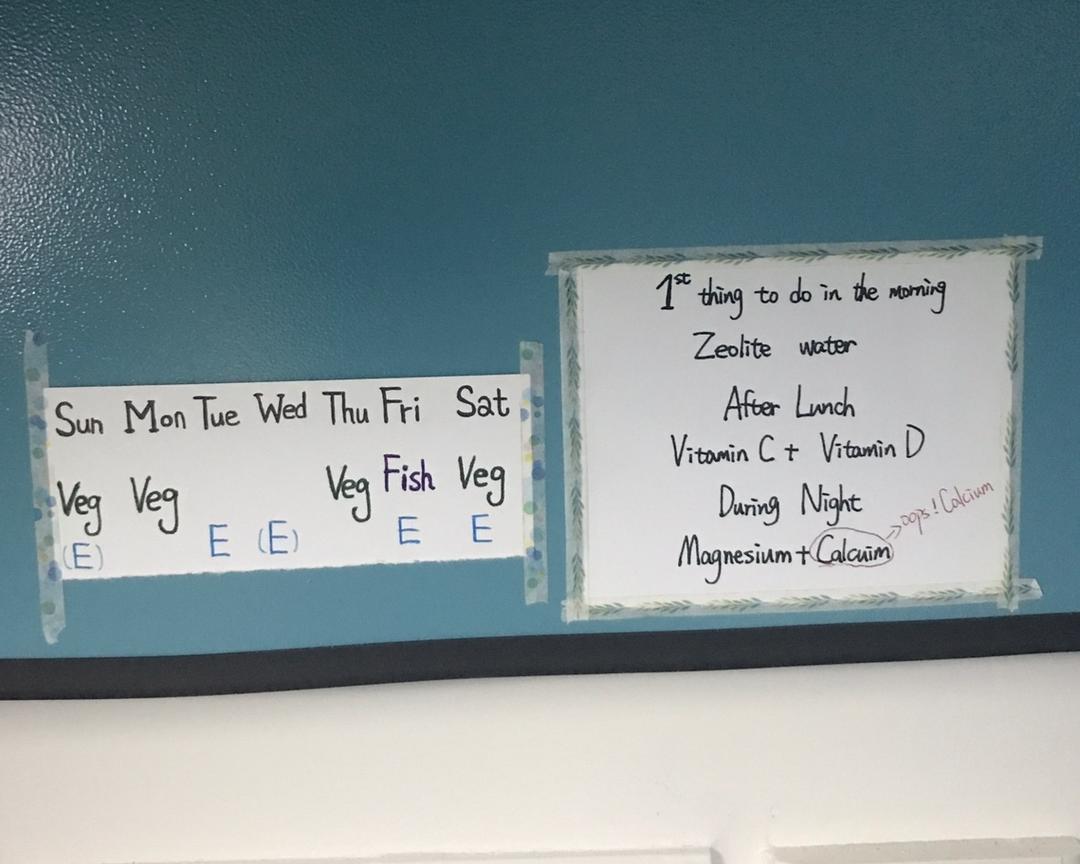 Sun Mon Tue Wed Thu Fri Sat
Veg Veg Veg Fish Veg
(E) E (E) E E
1st thing to do in the morning
Zeolite water
After Lunch
Vitamin C + Vitamin D
During Night
Magnesium + Calcuim
oops! Calcium